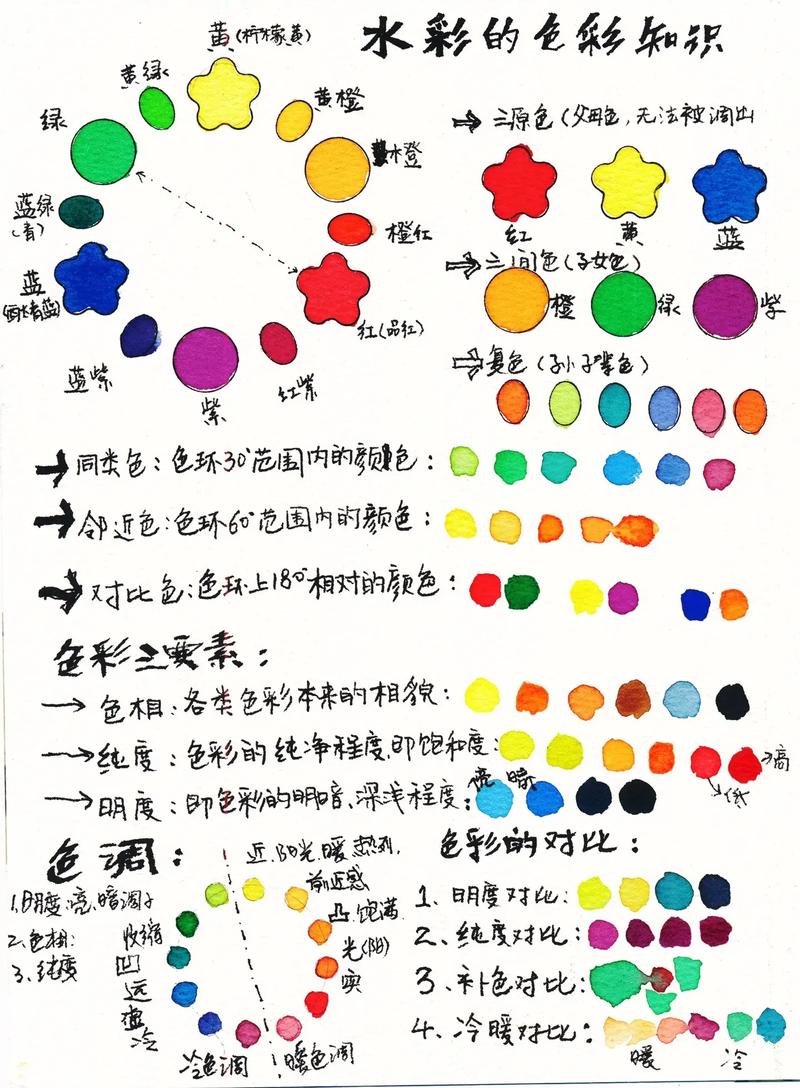 水彩的色彩知识
黄(柠檬黄)
黄绿
黄橙
绿
橙
蓝绿
(青)
橙红
蓝
红(品红)
蓝紫
紫
红紫
三原色(父母色,无法被调出
红
黄
蓝
三间色(子女色)
橙
绿
紫
复色(子小子辈色)
同类色:色环30°范围内的颜色:
邻近色:色环60°范围内的颜色:
对比色:色环上180°相对的颜色:
色彩三要素:
色相:各类色彩本来的相貌:
纯度:色彩的纯净程度,即饱和度:
高
低
明度:即色彩的明暗、深浅程度:
亮 暗
色调:
1.明度:亮、暗调子
2.色相:
3.纯度
近.阳光.暖.热烈.
前近感
凸.饱满.
光(阳)
实
收缩
凹
远
虚
冷
冷色调
暖色调
色彩的对比:
1、明度对比:
2、纯度对比:
3、补色对比:
4、冷暖对比:
暖
冷